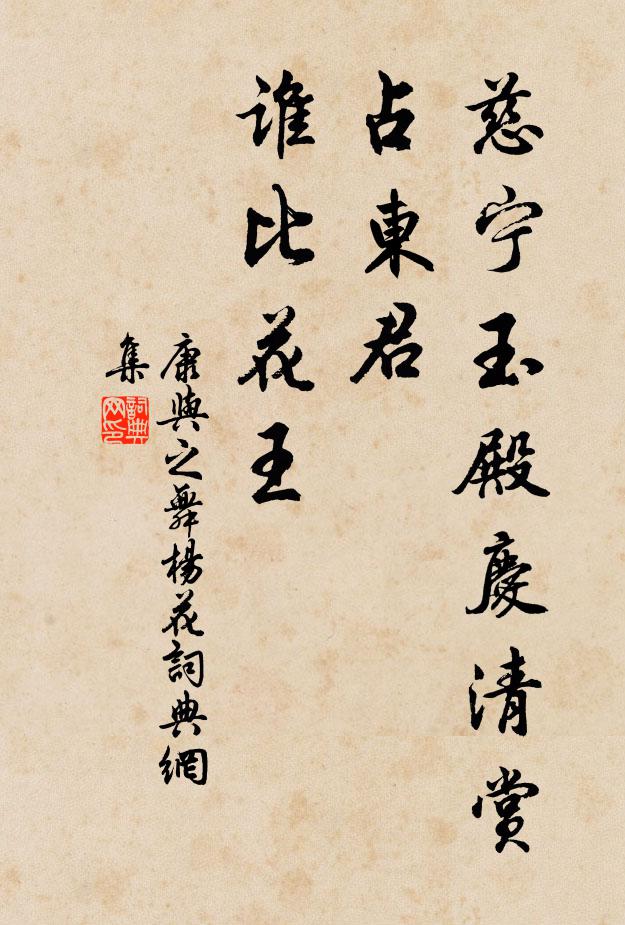 慈宁玉殿慶清賞
占東君
誰比花王
康與之舞楊花詞典網
集
詞典
网印